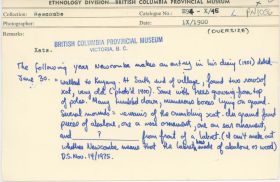 ETHNOLOGY DIVISION—BRITISH COLUMBIA PROVINCIAL MUSEUM
Collection: Newcombe Catalogue No.: E94 - X/45 PN1056
Photographer: Date: IX/1900
Remarks: (OVERSIZE)
BRITISH COLUMBIA PROVINCIAL MUSEUM
VICTORIA, B.C.
Kate.
The following year Newcombe makes an entry in his diary (1901) dated
June 30. - walked to Kayung. At South end of village, found two rows of
xat, very old (photo'd 1900). Some with trees growing from top
of poles. Many tumbled down, numerous bones lying on ground.
Several mounds = remains of the crumbling xat. On ground found
pieces of abalone, one a nose ornament, one an ear ornament,
and ? from front of a labret. (I'm not clear
whether Newcombe means that the labret made of abalone or wood)
D.S. Nov. 14/1975.